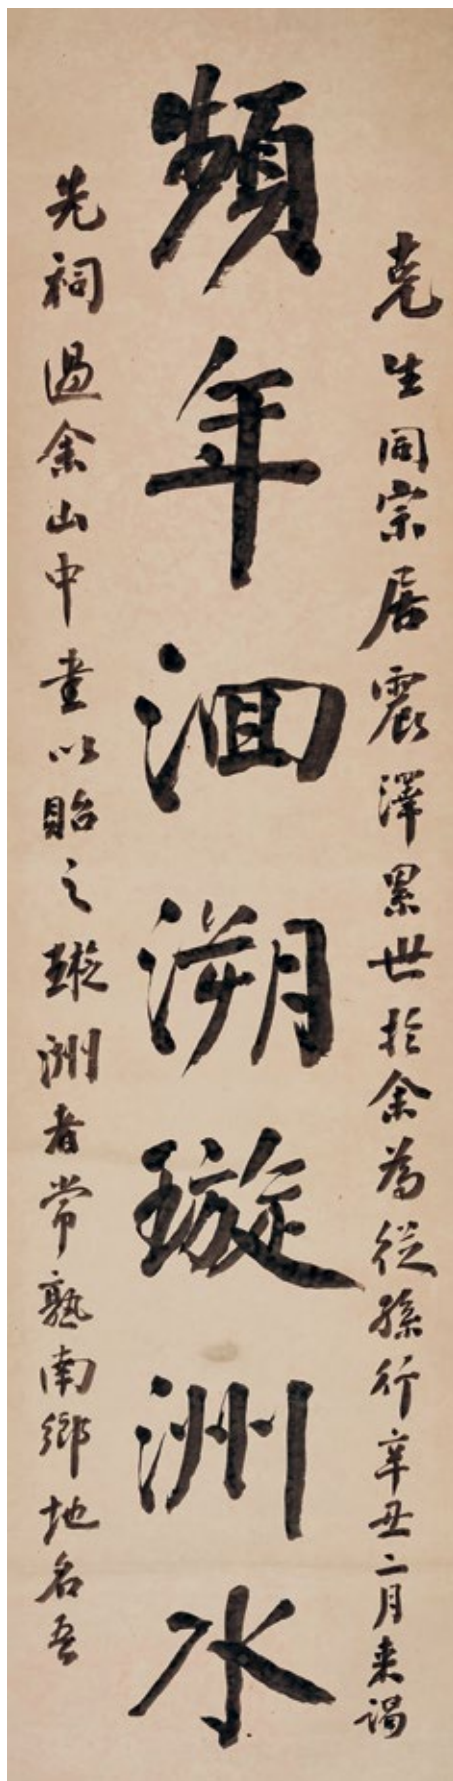 生同宗居震澤累世於余為從孫行辛丑二月来謁
頻年洄溯璇洲水
先祠過余山中書以貽之璇洲者常熟南鄉地名吾